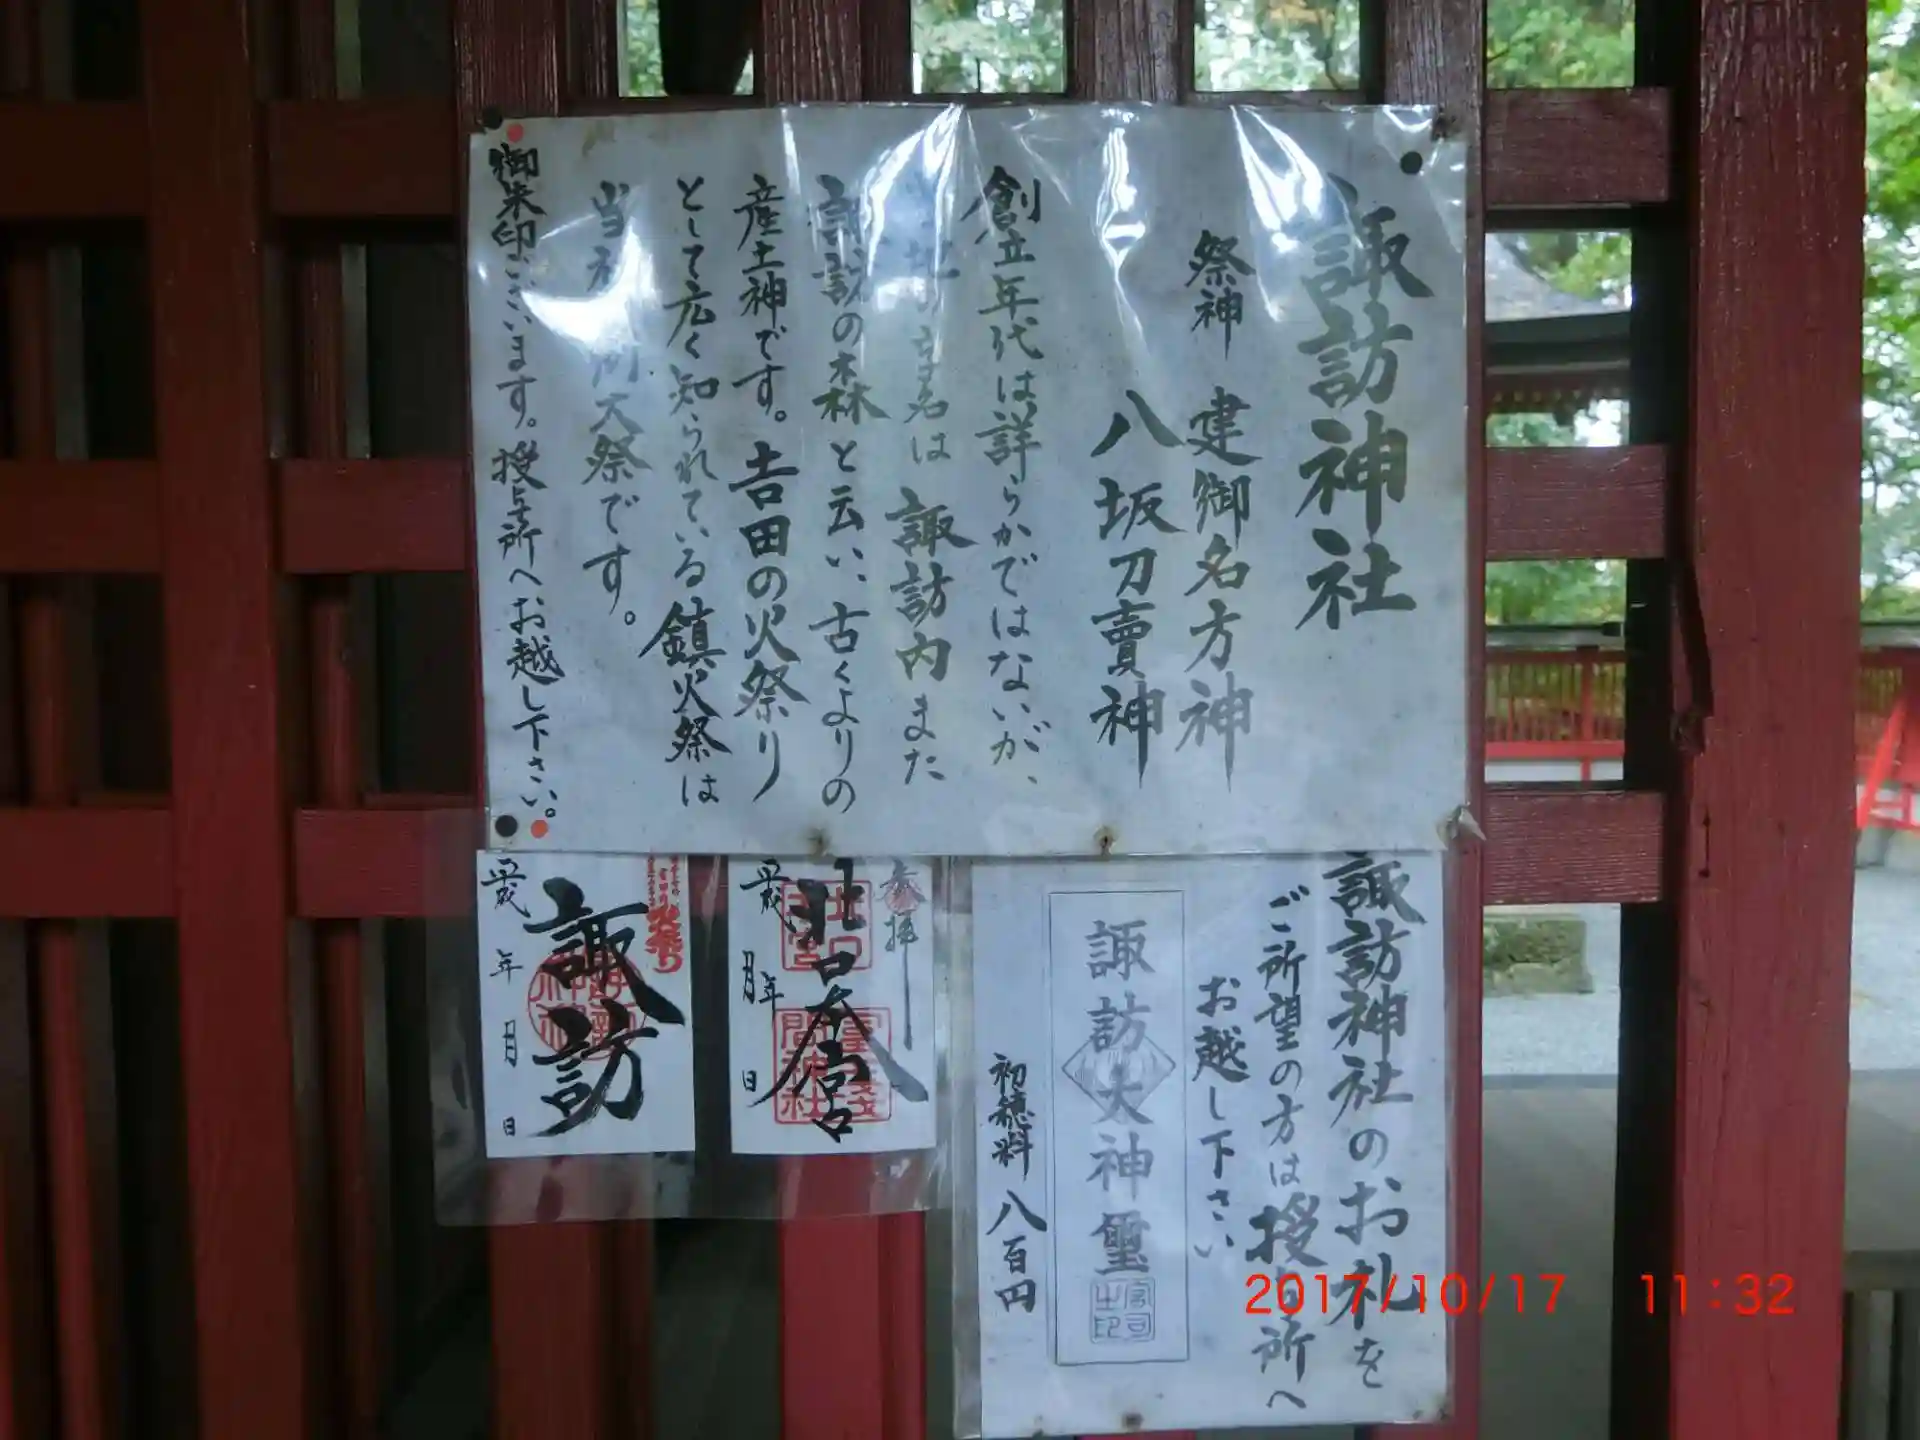 諏訪神社
祭神 建御名方神
八坂刀賣神
創立年代は詳らかではないが、
当地の字名は諏訪内また
諏訪の森と云い、古くよりの
産土神です。吉田の火祭り
として広く知られている鎮火祭は
当社 例大祭です。
御朱印ございます。授与所へお越し下さい。
諏訪神社のお札を
ご所望の方は授与所へ
お越し下さい
諏訪大神璽
初穂料 八百円
参拝
北口本宮
平成 年 月 日
諏訪
平成 年 月 日
2017/10/17 11:32